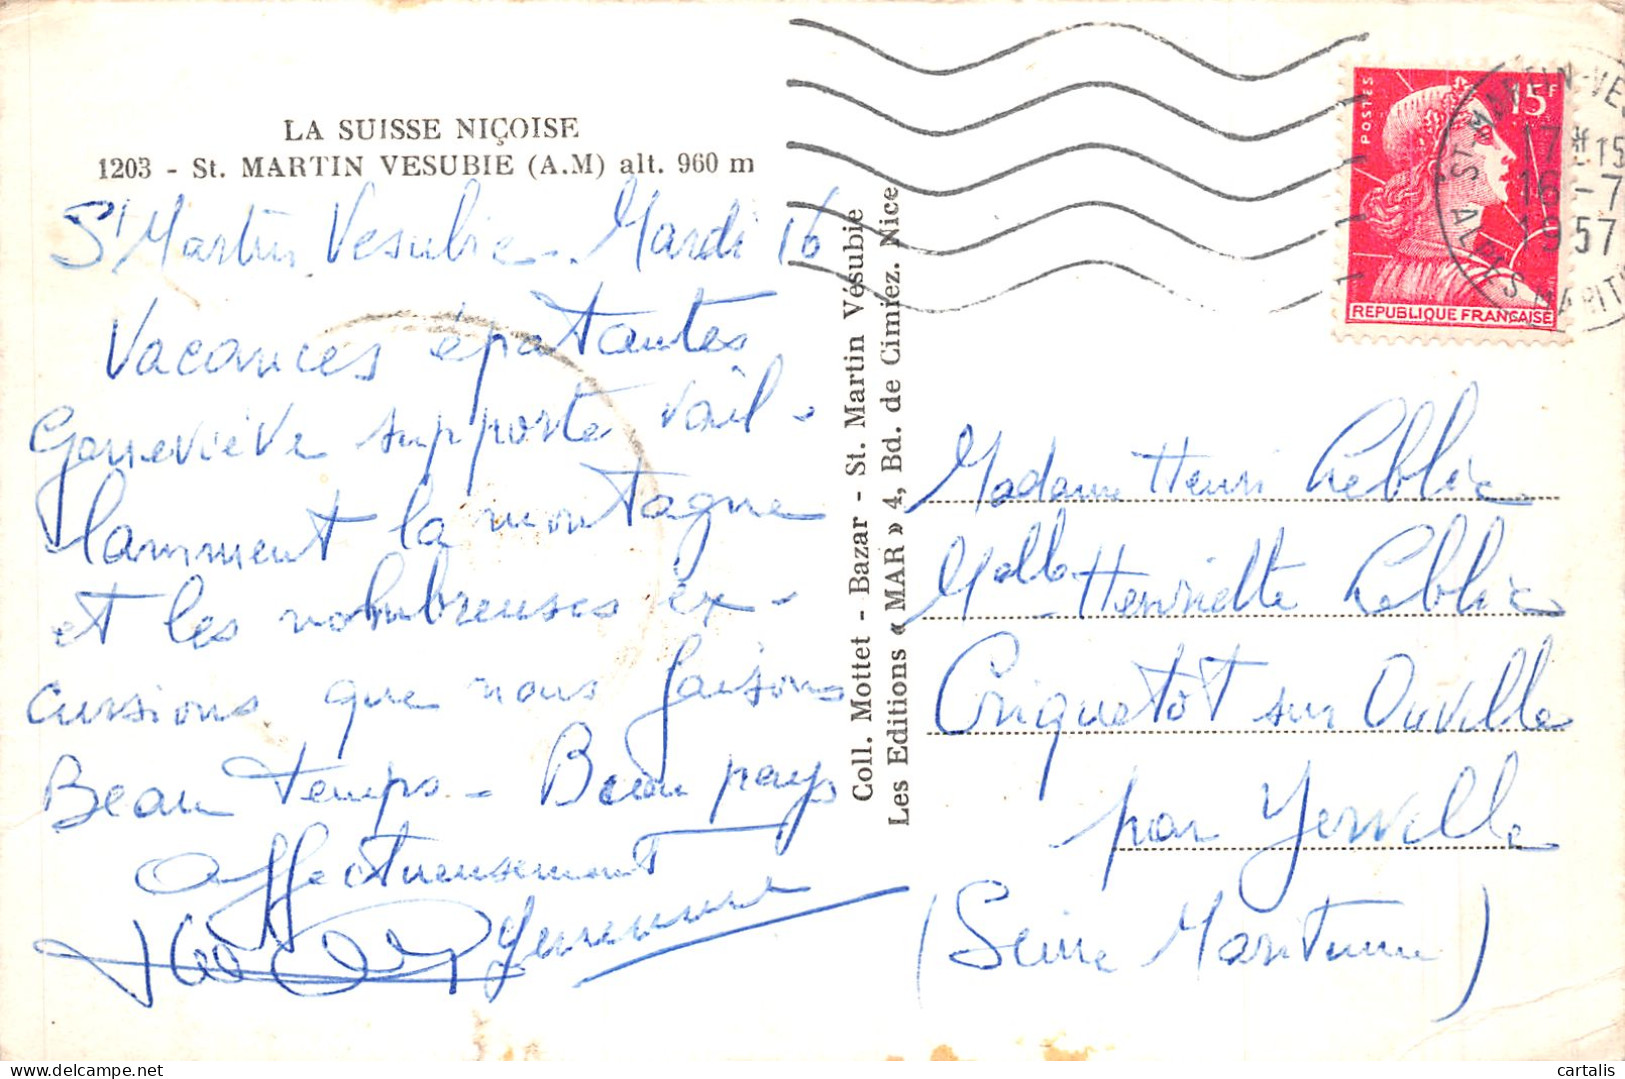 LA SUISSE NIÇOISE
1203 - St. MARTIN VESUBIE (A.M) alt. 960 m
St Martin Vesubie - Mardi 16
Vacances épatantes
Geneviève supporte vail-
lamment la montagne
et les nombreuses ex-
cursions que nous faisons
Beau temps - Beau pays
Affectueusement
Coll. Mottet - Bazar - St. Martin Vésubie
Les Editions « MAR » 4, Bd. de Cimiez. Nice
POSTES
15F
REPUBLIQUE FRANÇAISE
ST-MARTIN-VES
17H15
16-7
1957
ALPES MARIT
Madame Henri Leblic
Melle Henriette Leblic
Criquetot sur Ouville
par Yerville
(Seine Maritime)
cartalis
delcampe.net